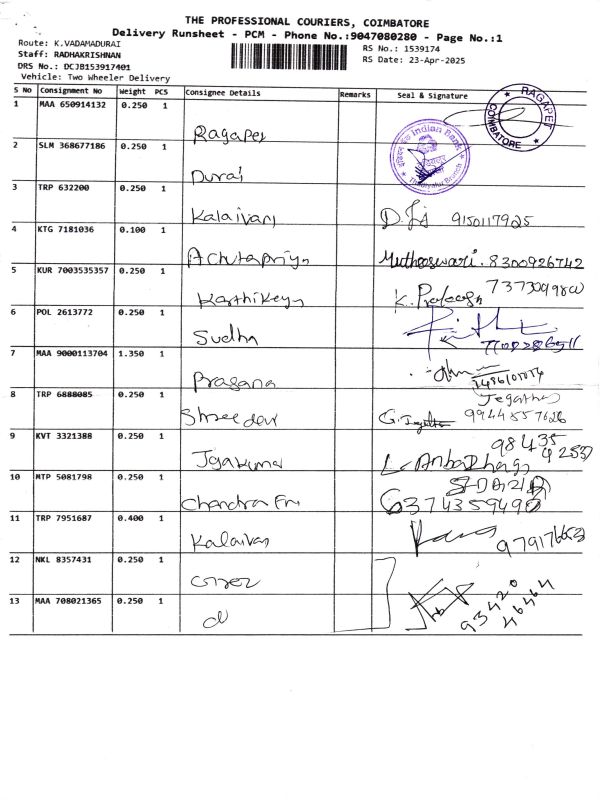 THE PROFESSIONAL COURIERS, COIMBATORE
Delivery Runsheet - PCM - Phone No.:9047080280 - Page No.:1
Route: K.VADAMADURAI
RS No.: 1539174
Staff: RADHAKRISHNAN
RS Date: 23-Apr-2025
DRS No.: DCJB153917401
Vehicle: Two Wheeler Delivery
S No Consignment No Weight PCS Consignee Details Remarks Seal & Signature
1 MAA 650914132 0.250 1 Ragapet
RAGAPET COIMBATORE
2 SLM 368677186 0.250 1 Durai
Indian Bank
3 TRP 632200 0.250 1 Kalaivani 9150117925
4 KTG 7181036 0.100 1 Achutapriya Mutheeswari. 8300926742
5 KUR 7003535357 0.250 1 Karthikeyn K.
6 POL 2613772 0.250 1 Sudha
7 MAA 9000113704 1.350 1 Prasana
8 TRP 6888085 0.250 1 Shree devi G. Jegatha 9944557626
9 KVT 3321388 0.250 1 Jgakumar L. 98435 42537
10 MTP 5081798 0.250 1 Chandra 6374359490
11 TRP 7951687 0.400 1 Kalaivan
12 NKL 8357431 0.250 1
13 MAA 708021365 0.250 1 93420 46464